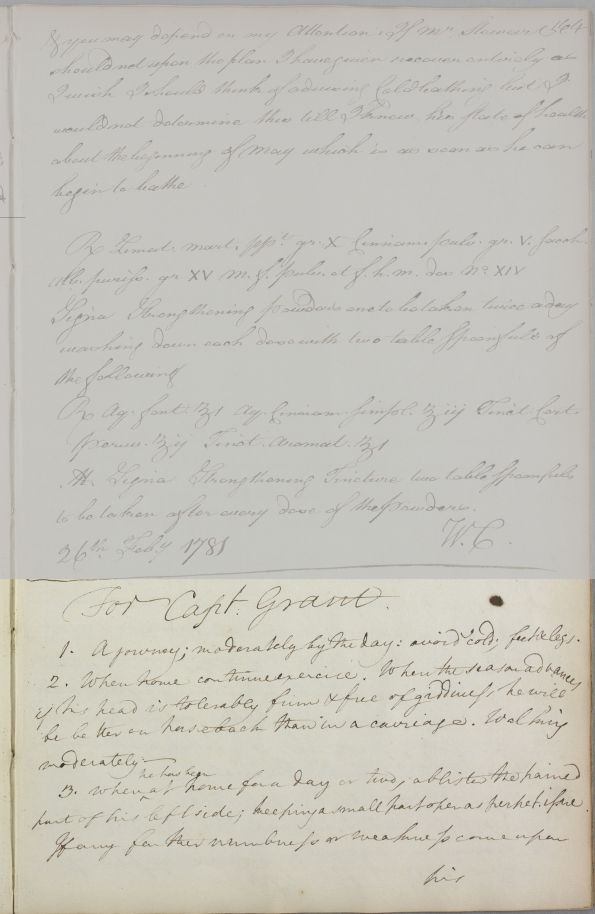 & you may depend on my Attention. If Mr. Stewart 504
should not upon the plan I have given recover entirely as
I wish I should think of advising Cold bathing but I
would not determine this till I know his state of health
about the beginning of May which is as soon as he can
begin to bathe.
Rx Limat: mart: ppt. gr. X Cinnam. pulv. gr. V. Sacch.
Alb. puriss. gr XV M. f. pulv. et f. h. m. dos No. XIV
Signa Strengthening powders one to be taken twice a day
washing down each dose with two table spoonfuls of
the following
Rx Aq. font. ℥ Aq. Cinnam. simpl. ℥iij Tinct Cort.
Peruv. ℥ij Tinct. Aromat. ℥
M. Signa Strengthening Tincture two table spoonfuls
to be taken after every dose of the powders.
26th. Feby 1781 W.C.
For Capt. Grant.
1. A journey; moderately by the day: avoid cold; feet & legs.
2. When home continue exercise. When the season advances
if his head is tolerably firm & free of giddiness he will
be better on horseback than in a carriage. Walking
moderately
3. When he has been at home for a day or two, a blister the pained
part of his left side; keeping a small part open as perpet. issue.
If any farther numbness or weakness come upon
his